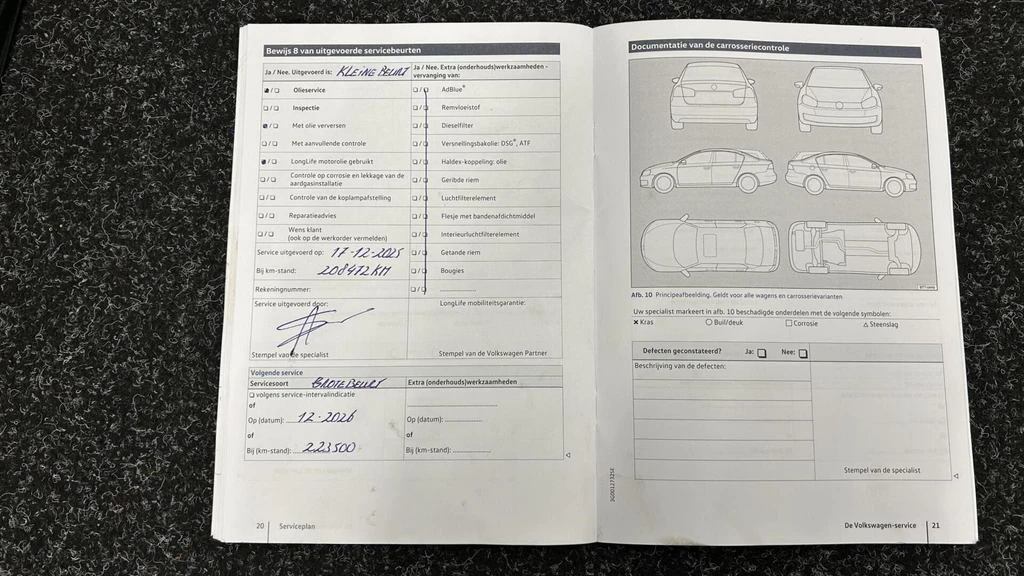 Bewijs 8 van uitgevoerde servicebeurten
Ja / Nee. Uitgevoerd is: KLEINE BEURT
Ja / Nee. Extra (onderhouds)werkzaamheden -
vervanging van:
Olieservice
AdBlue®
Inspectie
Remvloeistof
Met olie verversen
Dieselfilter
Met aanvullende controle
Versnellingsbakolie: DSG®, ATF
LongLife motorolie gebruikt
Haldex-koppeling: olie
Controle op corrosie en lekkage van de
aardgasinstallatie
Geribde riem
Controle van de koplampafstelling
Luchtfilterelement
Reparatieadvies
Flesje met bandenafdichtmiddel
Wens klant
(ook op de werkorder vermelden)
Interieurluchtfilterelement
Service uitgevoerd op: 17-12-2025
Getande riem
Bij km-stand: 208472KM
Bougies
Rekeningnummer:
Service uitgevoerd door:
LongLife mobiliteitsgarantie:
Stempel van de specialist
Stempel van de Volkswagen Partner
Volgende service
Servicesoort GROTE BEURT
Extra (onderhouds)werkzaamheden
volgens service-intervalindicatie
of
Op (datum): 12-2026
Op (datum):
of
of
Bij (km-stand): 223500
Bij (km-stand):
20 Serviceplan
Documentatie van de carrosseriecontrole
Afb. 10 Principeafbeelding. Geldt voor alle wagens en carrosserievarianten
Uw specialist markeert in afb. 10 beschadigde onderdelen met de volgende symbolen:
Kras
Buil/deuk
Corrosie
Steenslag
Defecten geconstateerd? Ja: Nee:
Beschrijving van de defecten:
Stempel van de specialist
3G0012732SE
De Volkswagen-service 21